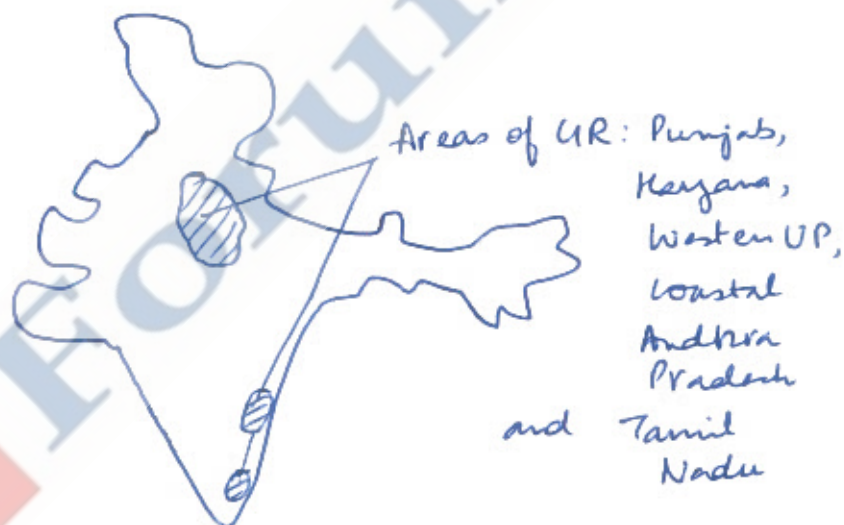 Forum
Areas of GR: Punjab,
Haryana,
Western UP,
Coastal
Andhra
Pradesh
and Tamil
Nadu